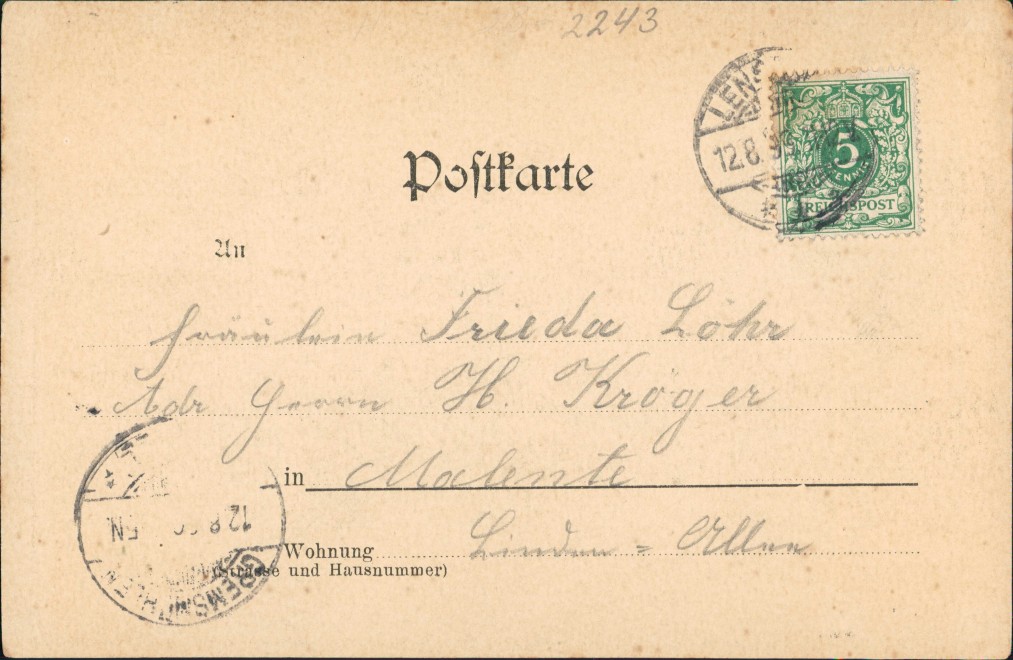 2243
LENS
12.8.9
5
REICHSPOST
Poſtkarte
An
Fräulein Frieda Löhr
Adr Herrn H. Kröger
in Malente
Wohnung Linden = Allee
(Strasse und Hausnummer)
12.8. 5N
GREMSMÜHLEN